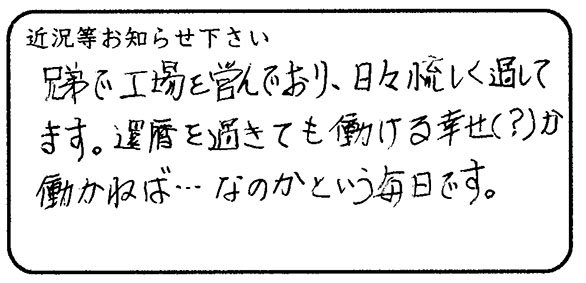 近況等お知らせ下さい
兄弟で工場を営んでおり、日々慌しく過して
ます。還暦を過ぎても働ける幸せ(?)か
働かねば…なのかという毎日です。